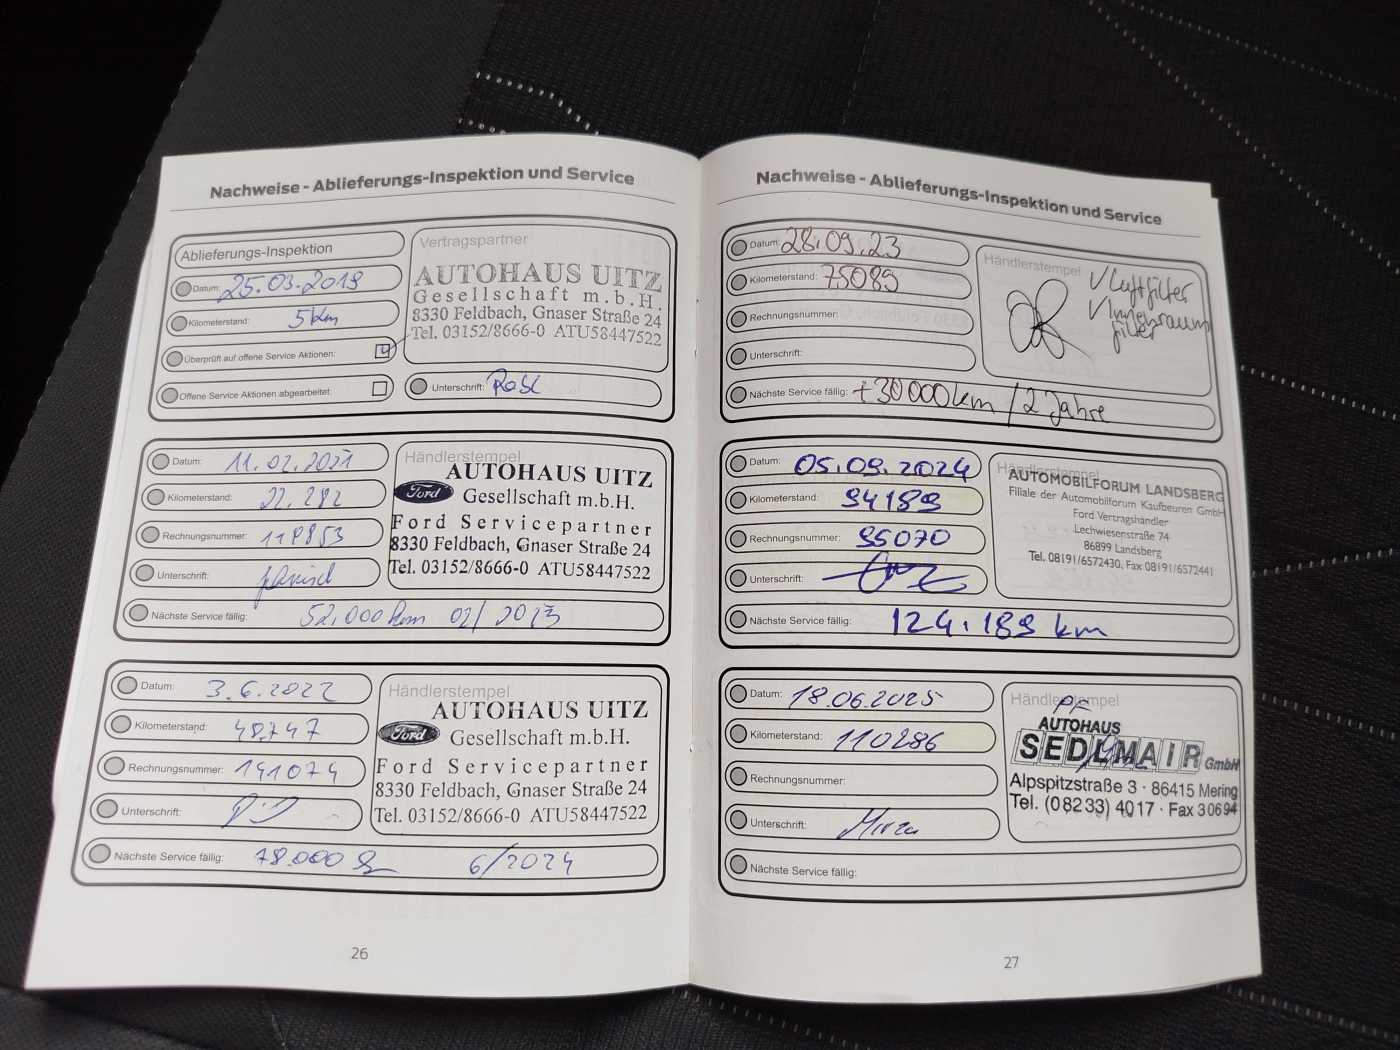 Nachweise - Ablieferungs-Inspektion und Service
Ablieferungs-Inspektion
Datum: 25.03.2019
Kilometerstand: 5 km
Überprüft auf offene Service Aktionen:
Offene Service Aktionen abgearbeitet:
Vertragspartner
AUTOHAUS UITZ
Gesellschaft m.b.H.
8330 Feldbach, Gnaser Straße 24
Tel. 03152/8666-0 ATU58447522
Unterschrift:
Datum: 11.02.2021
Kilometerstand: 22.282
Rechnungsnummer: 118853
Unterschrift:
Händlerstempel
AUTOHAUS UITZ
Ford Gesellschaft m.b.H.
Ford Servicepartner
8330 Feldbach, Gnaser Straße 24
Tel. 03152/8666-0 ATU58447522
Nächste Service fällig: 52.000 km 02/2023
Datum: 3.6.2022
Kilometerstand: 48.747
Rechnungsnummer: 141074
Unterschrift:
Händlerstempel
AUTOHAUS UITZ
Ford Gesellschaft m.b.H.
Ford Servicepartner
8330 Feldbach, Gnaser Straße 24
Tel. 03152/8666-0 ATU58447522
Nächste Service fällig: 78.000 6/2024
26
Nachweise - Ablieferungs-Inspektion und Service
Datum: 28.09.23
Kilometerstand: 75089
Rechnungsnummer:
Unterschrift:
Händlerstempel
✓ Luftfilter
✓ Innenraum
filter
Nächste Service fällig: +30000km / 2 Jahre
Datum: 05.09.2024
Kilometerstand: 94189
Rechnungsnummer: 95070
Unterschrift:
Händlerstempel
AUTOMOBILFORUM LANDSBERG
Filiale der Automobilforum Kaufbeuren GmbH
Ford Vertragshändler
Lechwiesenstraße 74
86899 Landsberg
Tel. 08191/6572430, Fax 08191/6572441
Nächste Service fällig: 124.189 km
Datum: 18.06.2025
Kilometerstand: 110286
Rechnungsnummer:
Unterschrift:
Händlerstempel
AUTOHAUS
SEDLMAIR GmbH
Alpspitzstraße 3 · 86415 Mering
Tel. (08233) 4017 · Fax 30694
Nächste Service fällig:
27